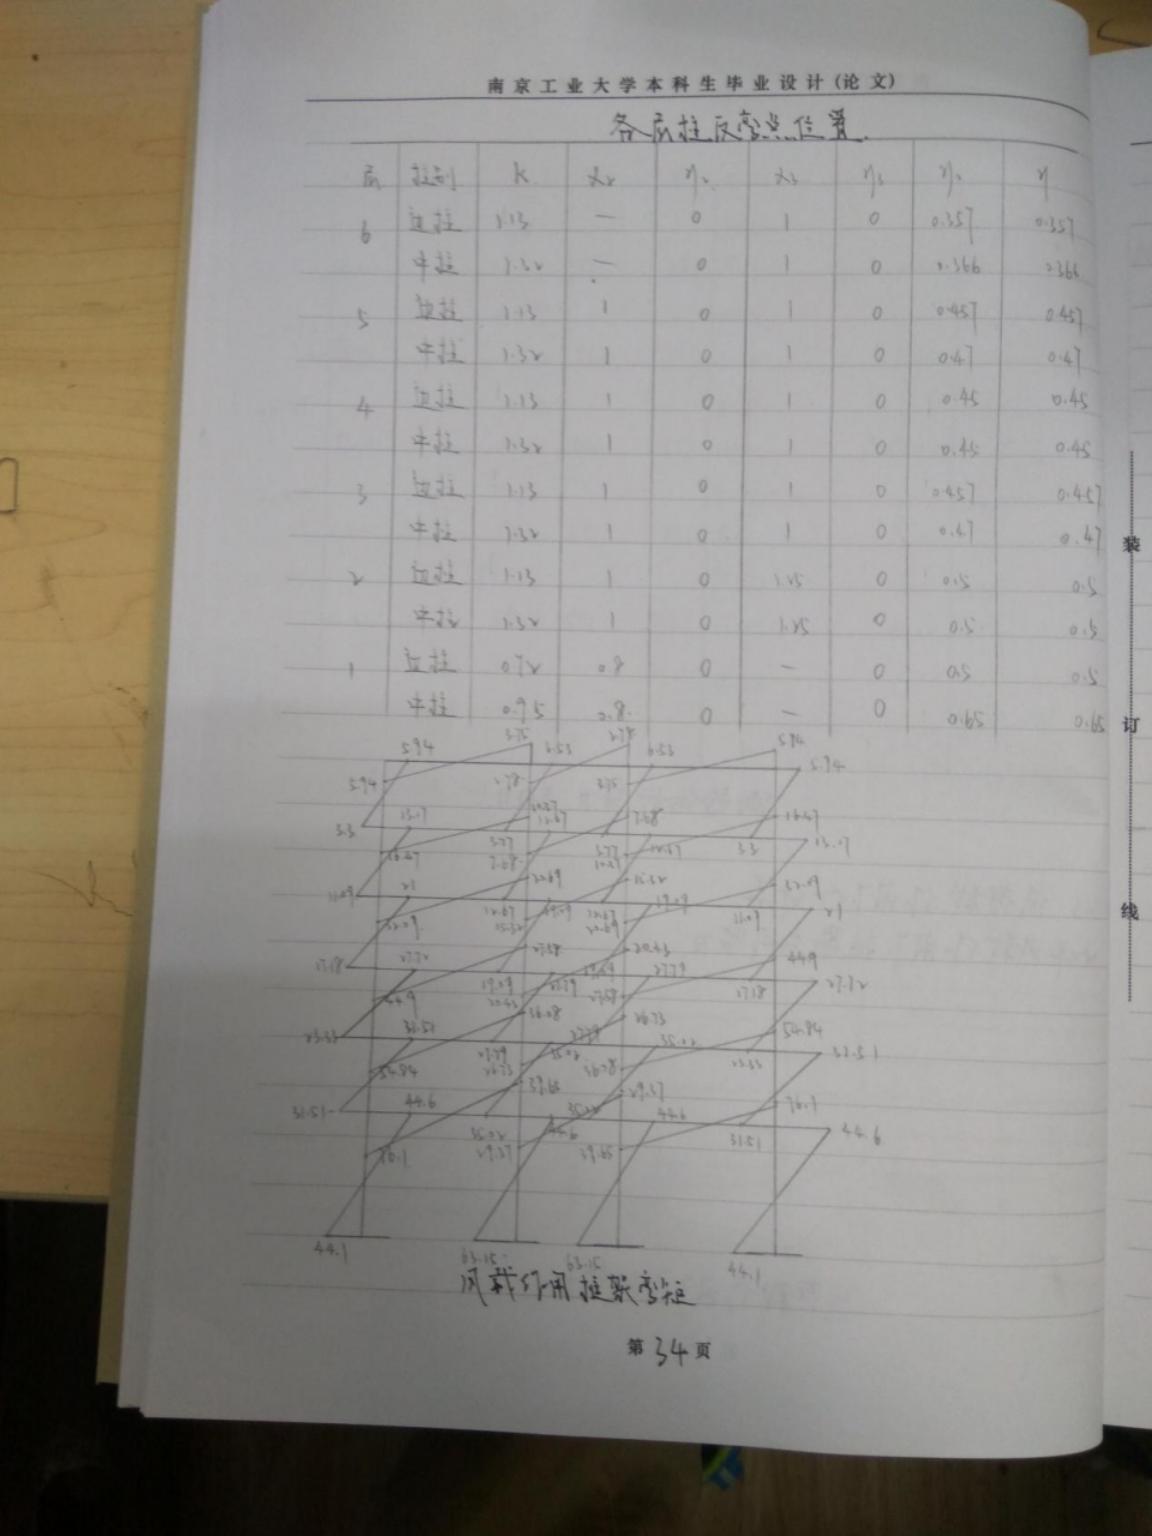 南京工业大学本科生毕业设计(论文)
各层柱反弯点位置
层 柱别 K α₂ η₂ α₃ η₃ η₀ η
6 边柱 1.13 — 0 1 0 0.357 0.357
中柱 1.32 — 0 1 0 0.366 0.366
5 边柱 1.13 1 0 1 0 0.457 0.457
中柱 1.32 1 0 1 0 0.47 0.47
4 边柱 1.13 1 0 1 0 0.45 0.45
中柱 1.32 1 0 1 0 0.45 0.45
3 边柱 1.13 1 0 1 0 0.457 0.457
中柱 1.32 1 0 1 0 0.47 0.47
2 边柱 1.13 1 0 1.25 0 0.5 0.5
中柱 1.32 1 0 1.25 0 0.5 0.5
1 边柱 0.72 0.8 0 — 0 0.5 0.5
中柱 0.95 0.8 0 — 0 0.65 0.65
5.94 3.75 6.53 2.78 6.53 5.94
5.94 2.78 3.75 5.94
13.17 7.68 16.47
3.3 3.77 3.77 3.3 13.17
16.47 7.68
20.69 32.09
11.09 21 12.67 19.09 19.09 11.09 21
32.09 20.69
27.58 20.43 44.9
17.18 27.72 19.09 27.79 27.79 17.18 27.72
44.9 20.43 27.58
36.08 26.73 54.84
23.33 31.51 27.79 35.02 35.02 23.33 31.51
54.84 26.73 36.08
39.65 29.37 76.1
31.51 44.6 35.02 44.6 35.02 44.6 31.51 44.6
76.1 29.37 39.65
44.1 63.15 63.15 44.1
风载作用框架弯矩
第34页
装
订
线